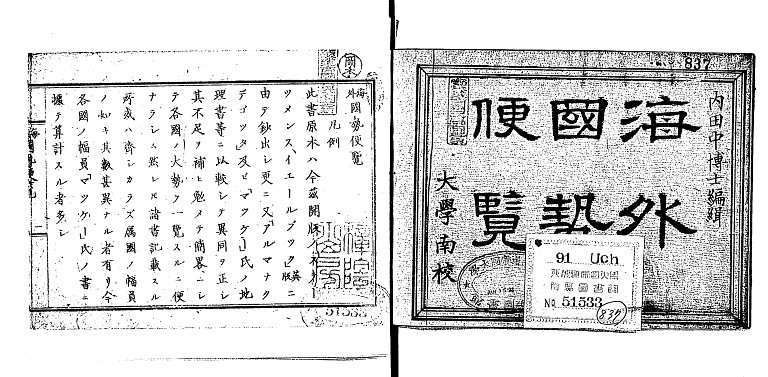 837
内田中博士編輯
海外
國勢
便覧
大學南校
91 Uch
No 51533
837
海外國勢便覧
凡例
此書原本ハ今茲開版ノ
ツメンスイエールブック英版ニ
由テ鈔出シ更ニ又「アルマナク
デゴッタ」及ヒ「マックグー」氏ノ地
理書等ニ以較シテ異同ヲ正シ
其不足ヲ補ヒ勉メテ簡畧ニシ
テ各國ノ大勢ヲ一覧スルニ便
ナラシム然レ𪜈諸書記載スル
所或ハ齊シカラズ属國ノ幅員
ノ如キ其數甚異ナル者有リ今
各國ノ幅員「マックグー」氏ノ書ニ
據テ算計スル者多シ
51533